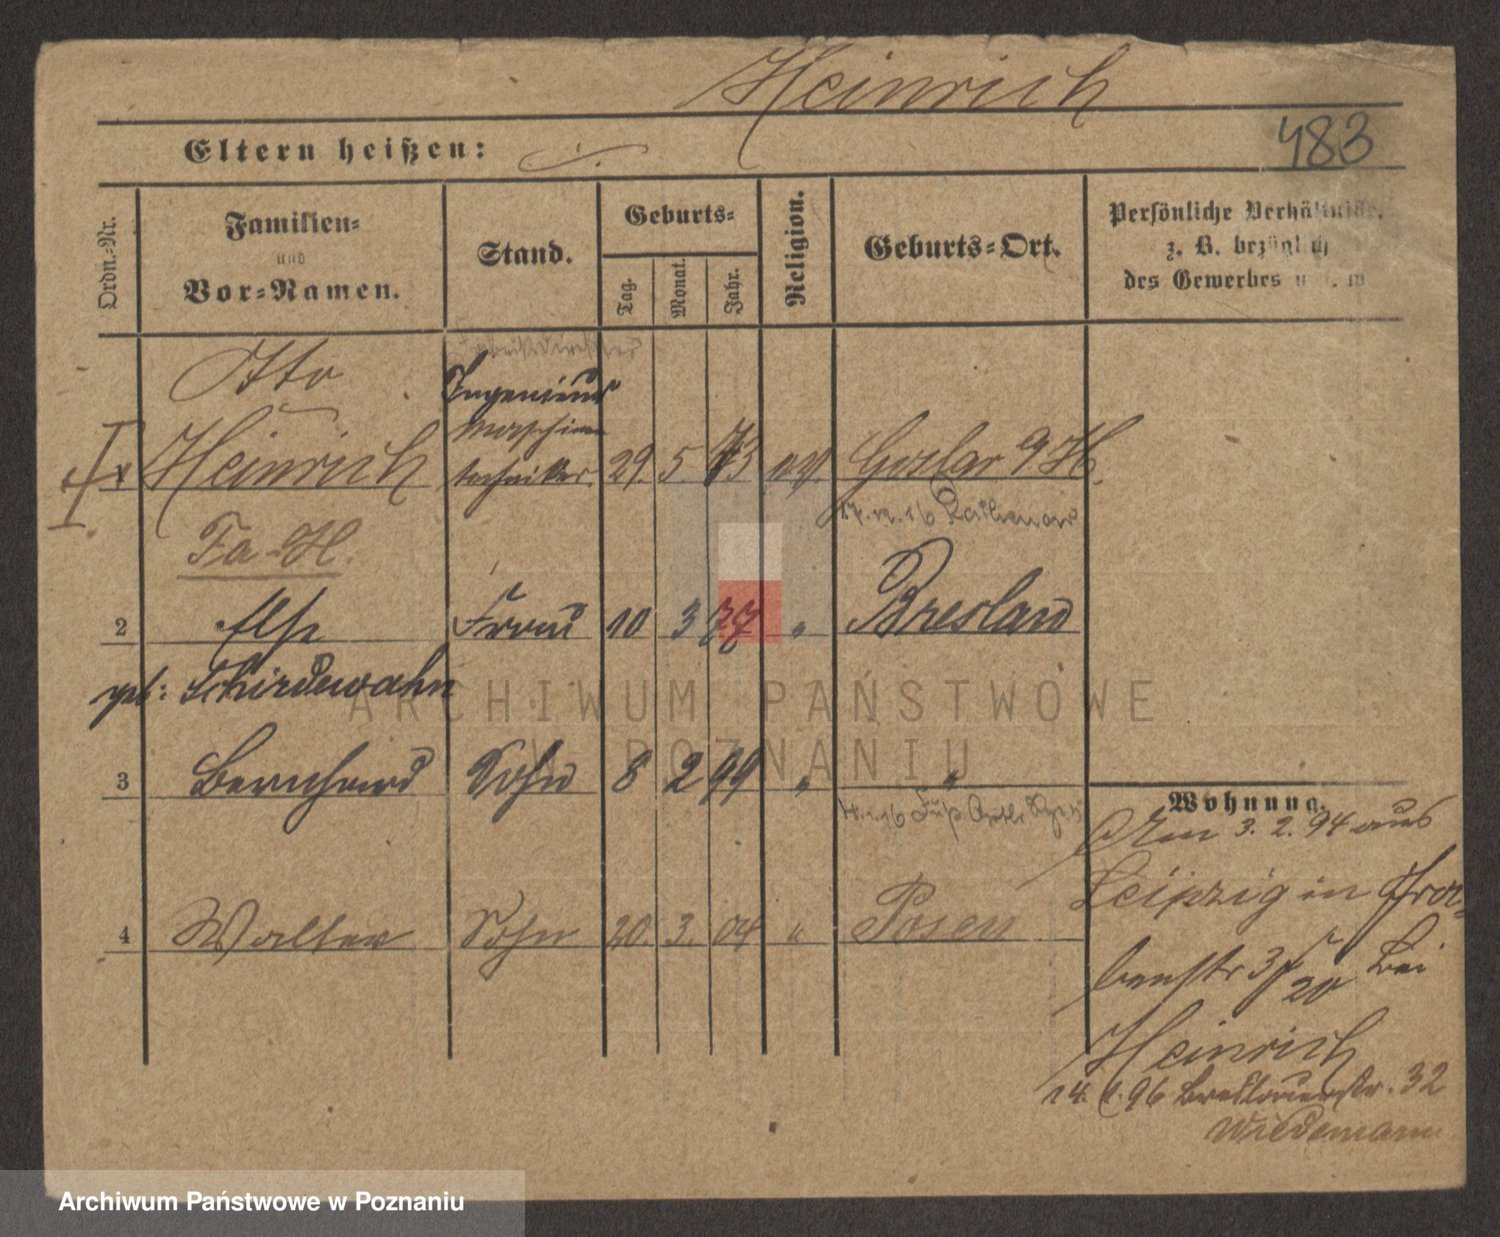 Heinrich
Eltern heißen: 483
Ordn.-Nr. Familien- und Vor-Namen. Stand. Geburts- Tag. Monat. Jahr. Religion. Geburts-Ort. Persönliche Verhältnisse, z. B. bezüglich des Gewerbes u. s. w
Otto
Ingenieur
Maschinen
Heinrich techniker. 29. 5. 73 ev. Goslar a/H.
17.12.16
Fa-H.
2 Else Frau 10 3 77 " Breslau
geb: Schirdewahn
ARCHIWUM PAŃSTWOWE
W POZNANIU
3 Bernhard Sohn 8 2 99 " "
Wohnung.
Am 3. 2. 94 aus
Leipzig in
4 Walter Sohn 20. 3. 04 " Posen
bei
Heinrich
14. 96 Breslauerstr. 32
Wiedemann
Archiwum Państwowe w Poznaniu